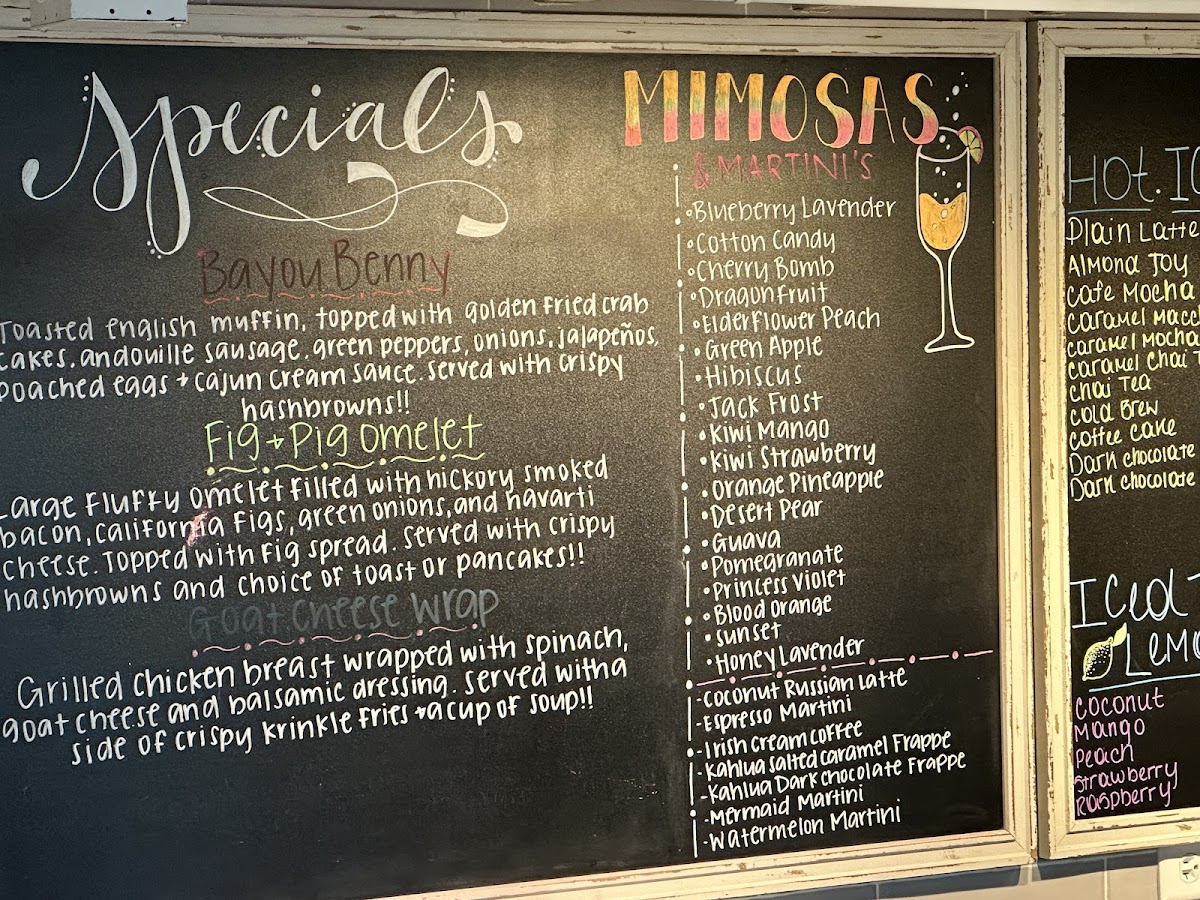 Specials
Bayou Benny
Toasted english muffin, topped with golden fried crab
cakes, andouille sausage, green peppers, onions, jalapeños,
poached eggs + cajun cream sauce. Served with crispy
hashbrowns!!
Fig + Pig omelet
Large fluffy omelet filled with hickory smoked
bacon, california figs, green onions, and havarti
cheese. Topped with fig spread. Served with crispy
hashbrowns and choice of toast or pancakes!!
Goat cheese wrap
Grilled chicken breast wrapped with spinach,
goat cheese and balsamic dressing. Served with a
side of crispy krinkle fries + a cup of soup!!
MIMOSAS
& MARTINI'S
•Blueberry Lavender
•Cotton Candy
•Cherry Bomb
•Dragonfruit
•Elderflower Peach
•Green Apple
•Hibiscus
•Jack Frost
•Kiwi Mango
•Kiwi Strawberry
•Orange Pineapple
•Desert Pear
•Guava
•Pomegranate
•Princess Violet
•Blood Orange
•Sunset
•Honey Lavender
-Coconut Russian Latte
-Espresso Martini
-Irish Cream Coffee
-Kahlua Salted Caramel Frappe
-Kahlua Dark Chocolate Frappe
-Mermaid Martini
-Watermelon Martini
Hot. IC
Plain Latte
Almond Joy
Cafe Mocha
Caramel Macc
Caramel Mocha
Caramel Chai
Chai Tea
Cold Brew
Coffee Cake
Dark Chocolate
Dark Chocolate
Iced T
Lemo
Coconut
Mango
Peach
Strawberry
Raspberry